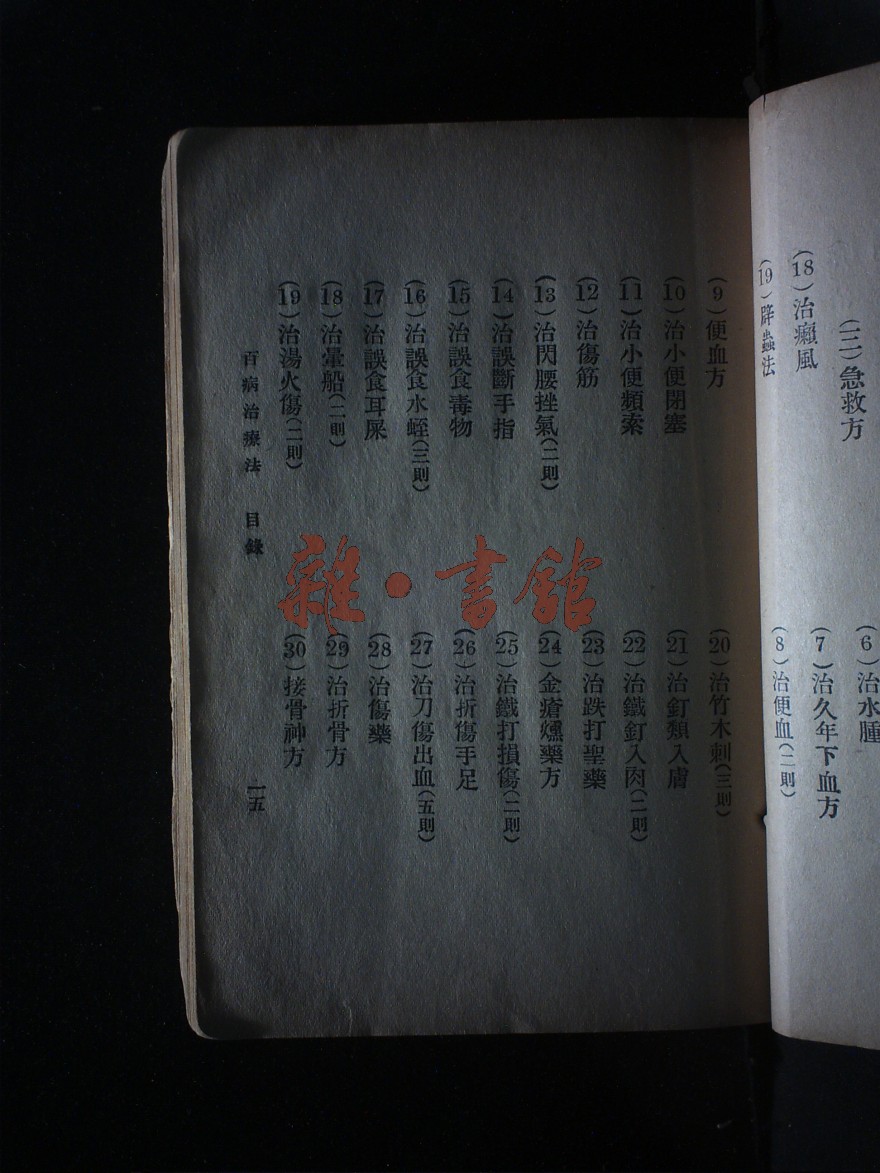 (18)治癩風
(19)辟蟲法
(三)急救方
(6)治水腫
(7)治久年下血方
(8)治便血(二則)
(9)便血方
(10)治小便閉塞
(11)治小便頻索
(12)治傷筋
(13)治閃腰挫氣(二則)
(14)治誤斷手指
(15)治誤食毒物
(16)治誤食水蛭(三則)
(17)治誤食耳屎
(18)治暈船(二則)
(19)治湯火傷(二則)
(20)治竹木刺(三則)
(21)治釘類入膚
(22)治鐵釘入肉(二則)
(23)治跌打聖藥
(24)金瘡燻藥方
(25)治鐵打損傷(二則)
(26)治折傷手足
(27)治刀傷出血(五則)
(28)治傷藥
(29)治折骨方
(30)接骨神方
百病治療法 目錄
一五
雜·書館